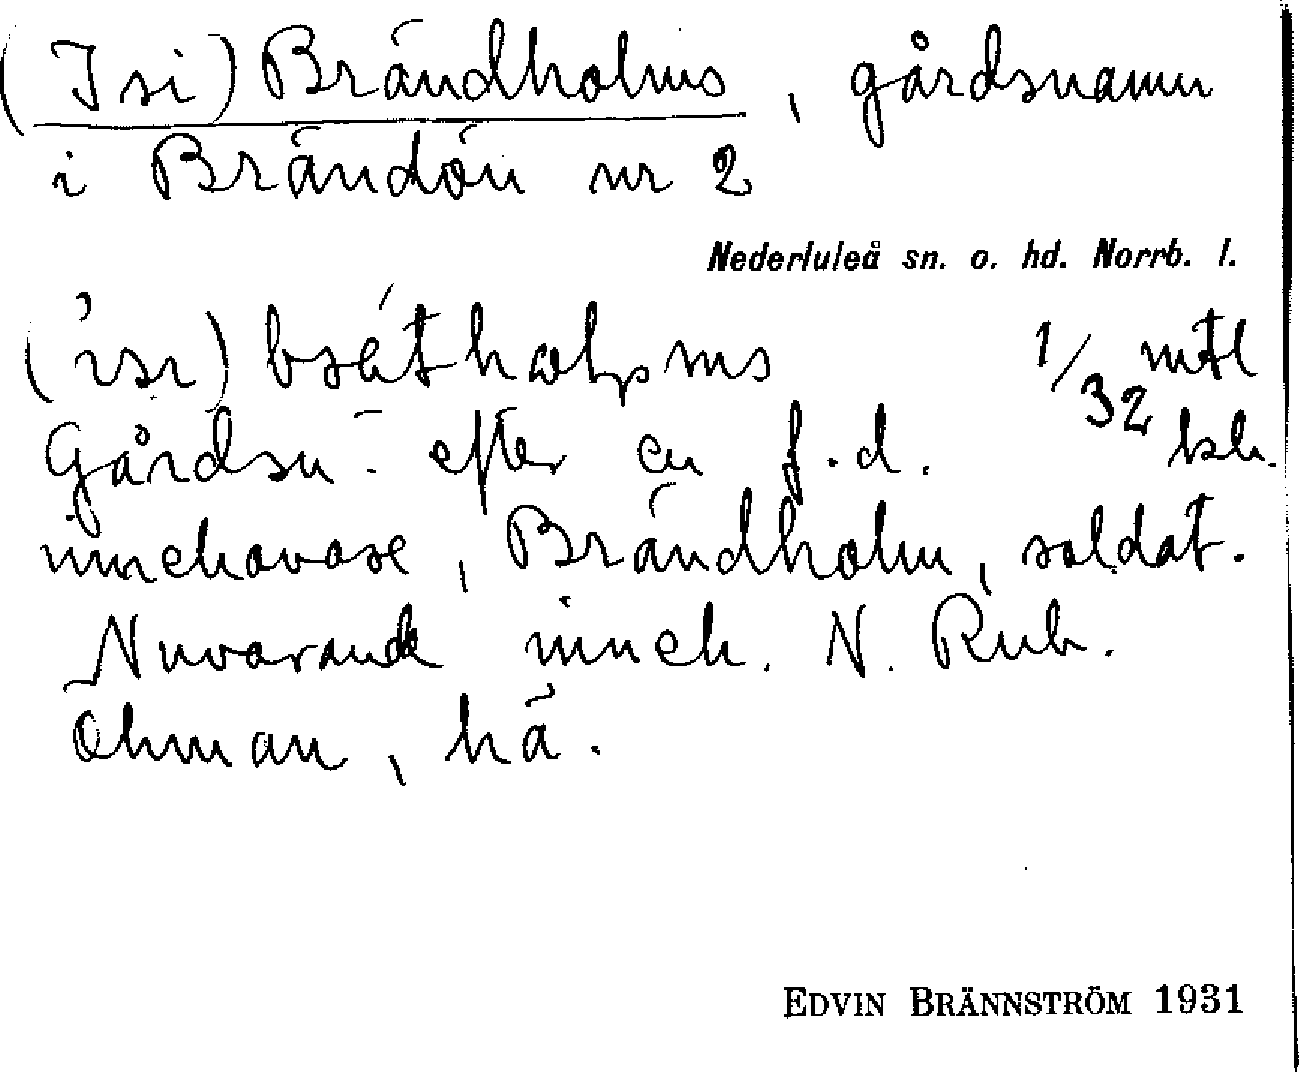 (Isi) Brändholms, gårdsnamn
i Brändön nr 2
Nederluleå sn. o. hd. Norrb. l.
1/32 mtl
Gårdsn. efter en f. d. ksk.
innehavare, Brändholm, soldat.
Nuvarande inneh. N. Rub.
Öhman, hä.
EDVIN BRÄNNSTRÖM 1931